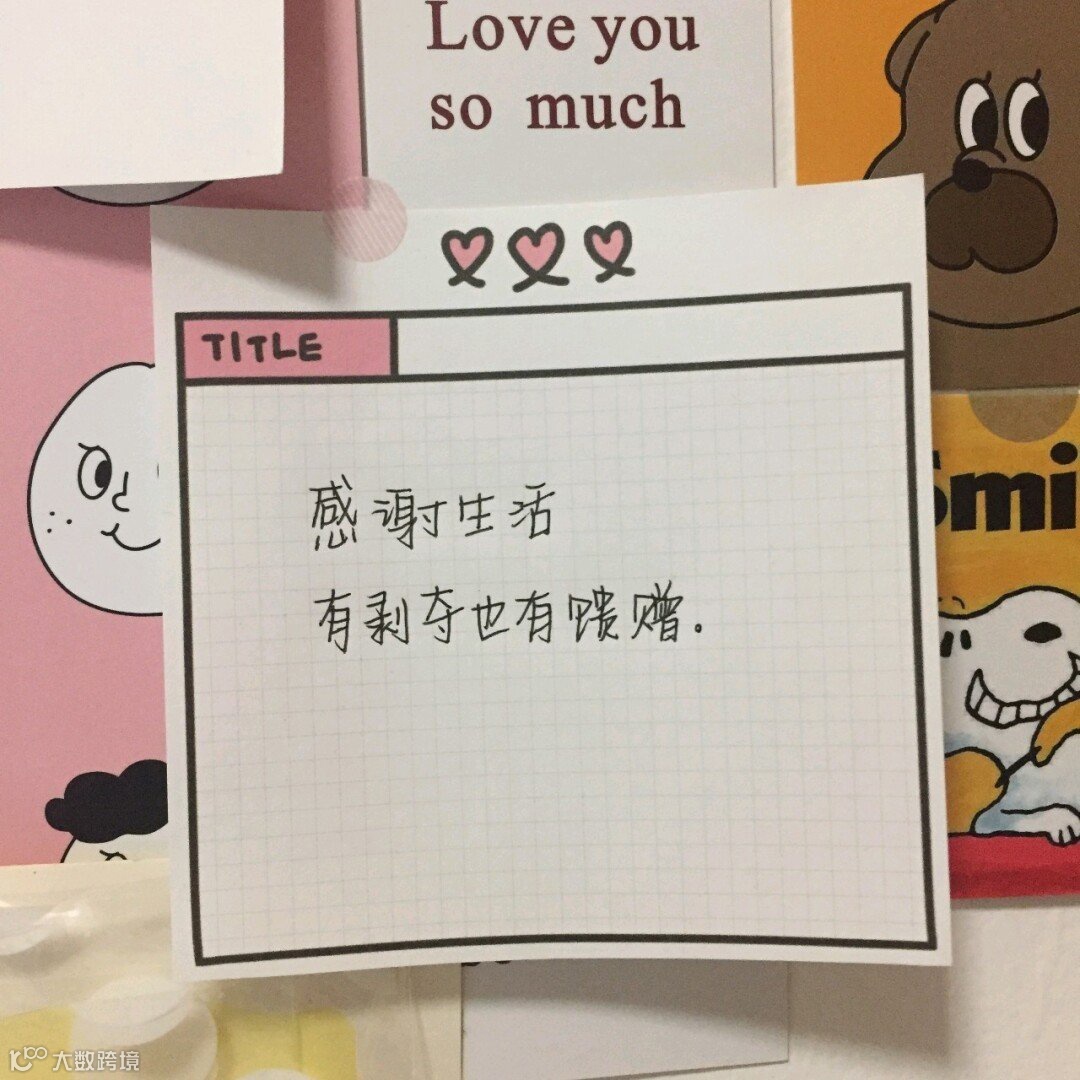 Love you
so much
TITLE
感谢生活
有剥夺也有馈赠.
Smi
大数跨境